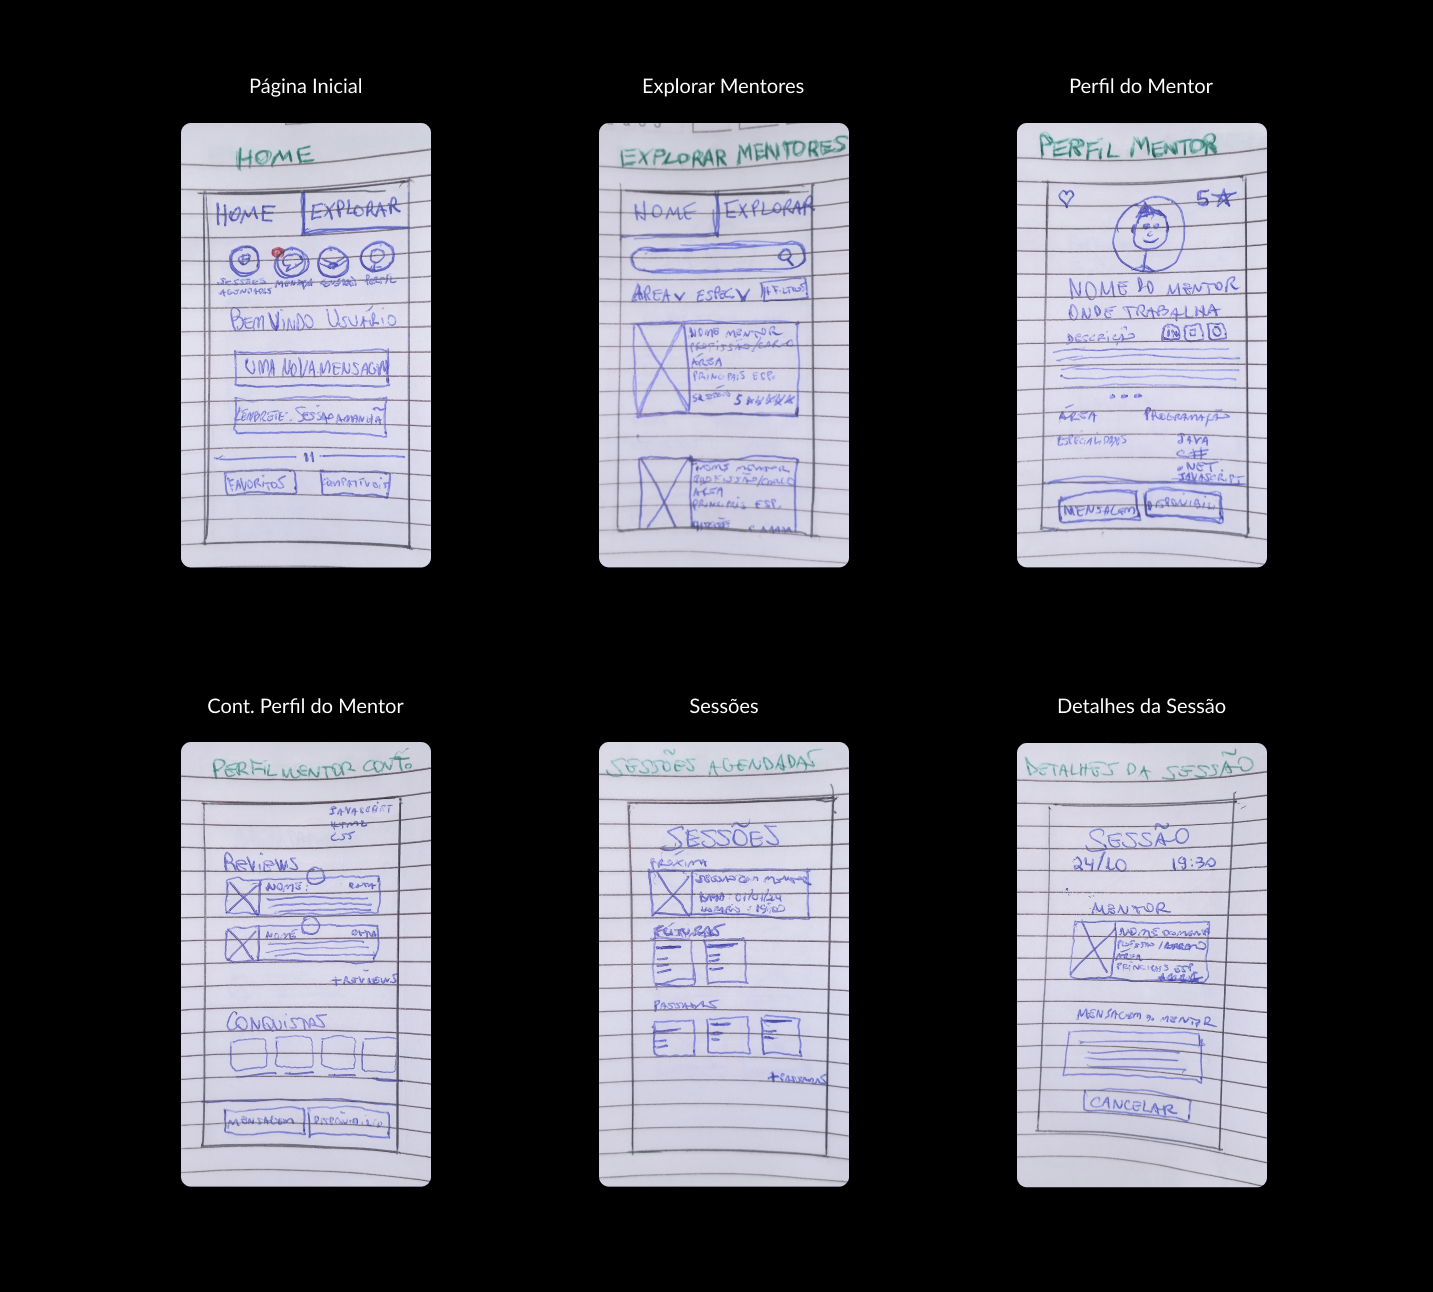 Página Inicial
HOME
HOME EXPLORAR
SESSÕES AGENDADAS
PERFIL
BEM VINDO USUÁRIO
UMA NOVA MENSAGEM
LEMBRETE: SESSÃO AMANHÃ
FAVORITOS
Explorar Mentores
EXPLORAR MENTORES
HOME EXPLORAR
ÁREA ESPEC + FILTROS
NOME MENTOR
PROFISSÃO/CARGO
ÁREA
PRINCIPAIS ESP.
5
NOME MENTOR
PROFISSÃO/CARGO
ÁREA
PRINCIPAIS ESP.
Perfil do Mentor
PERFIL MENTOR
5
NOME DO MENTOR
ONDE TRABALHA
DESCRIÇÃO
ÁREA PROGRAMAÇÃO
ESPECIALIDADES JAVA
C#
.NET
JAVASCRIPT
MENSAGEM DISPONIBILI
Cont. Perfil do Mentor
PERFIL MENTOR CONT.
JAVASCRIPT
HTML
CSS
Reviews
NOME: DATA
NOME DATA
+REVIEWS
CONQUISTAS
MENSAGEM
Sessões
SESSÕES AGENDADAS
SESSÕES
PRÓXIMA
SESSÃO COM MENTOR
DATA: 01/01/24
HORÁRIO: 19:00
FUTURAS
PASSADAS
+PASSADAS
Detalhes da Sessão
DETALHES DA SESSÃO
SESSÃO
24/10 19:30
MENTOR
NOME DO MENTOR
ÁREA
PRINCIPAIS ESP.
MENSAGEM P. MENTOR
CANCELAR